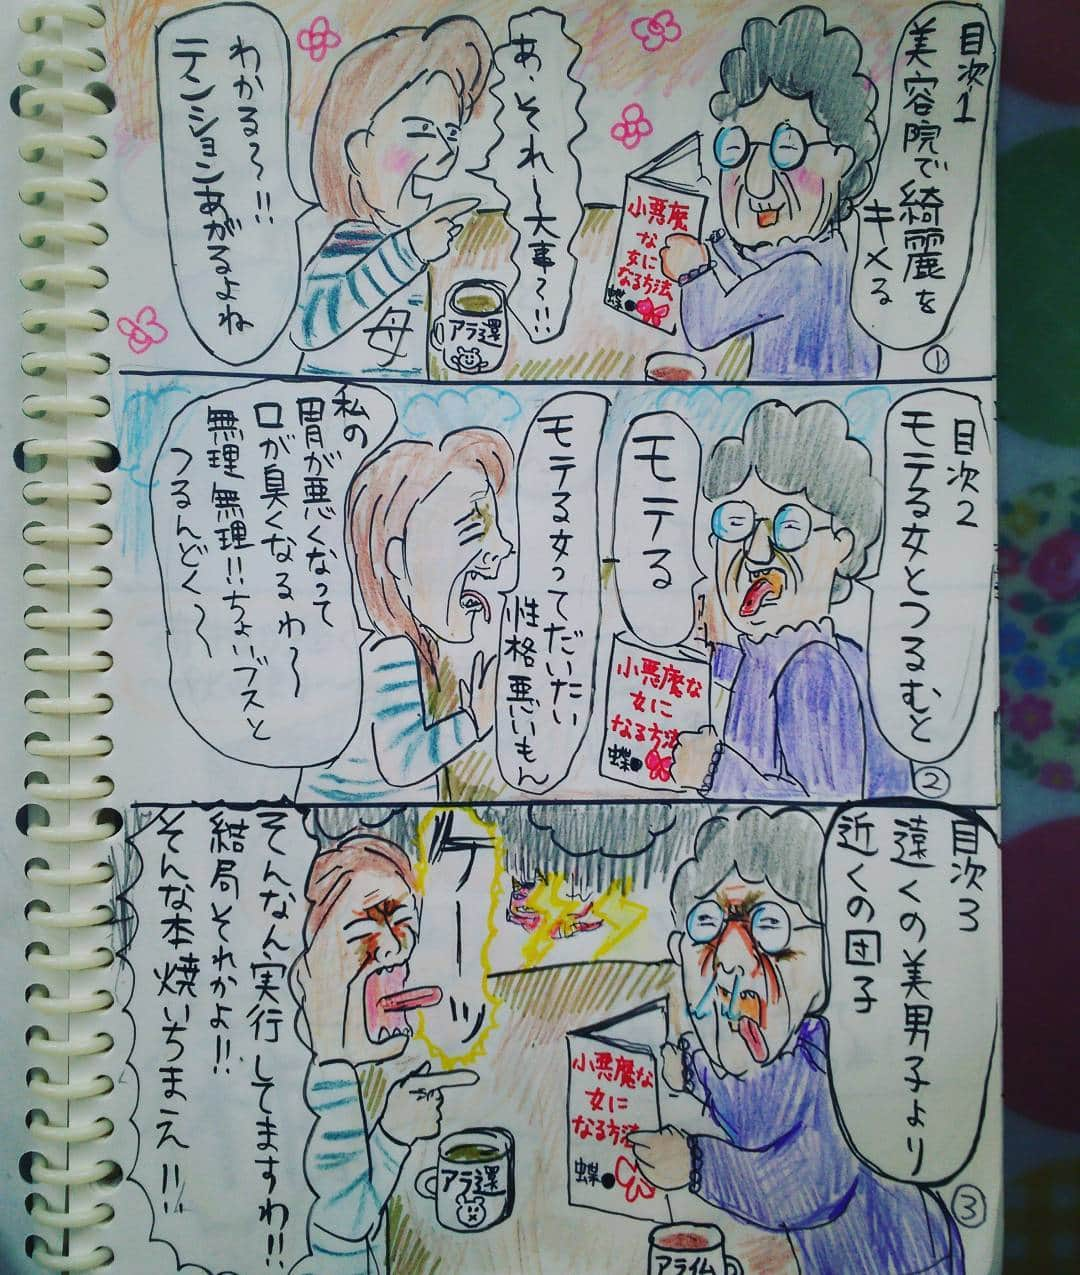 目次1
美容院で綺麗を
キメる
①
小悪魔
な
女に
なる方法
蝶●
あ、それ〜大事〜!!
わかる〜!!
テンションあがるよね
アラ還
母
目次2
モテる女とつるむと
モテる
②
小悪魔な
女に
なる方法
蝶●
モテる女ってだいたい
性格悪いもん
私の
胃が悪くなって
口が臭くなるわ〜
無理無理!!ちょいブスと
つるんどく〜
目次3
遠くの美男子より
近くの団子
③
小悪魔な
女に
なる方法
蝶●
そんなん実行してますわ!!
結局それかよ!!
そんな本焼いちまえ!!
アラ還
アライム